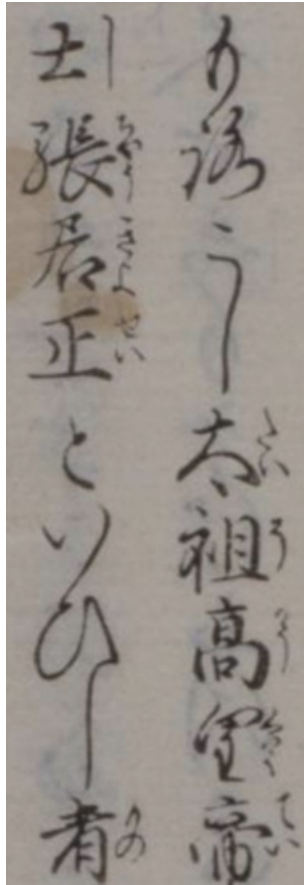 もろこし太祖高皇帝
士張居正といひし者